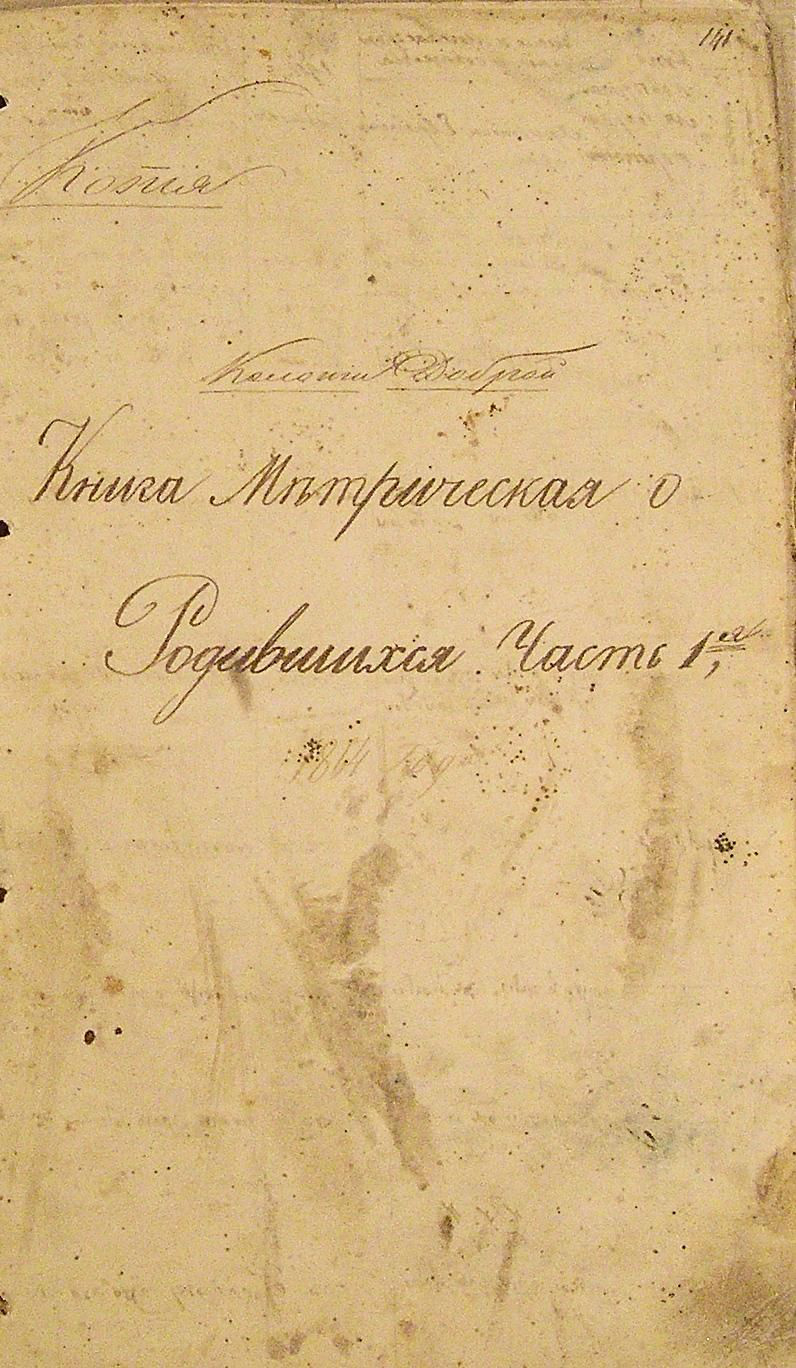 141
Копія
Колоніи Доброй
Книга Мѣтрическая о
Родившихся. Часть 1я,
1864 Года